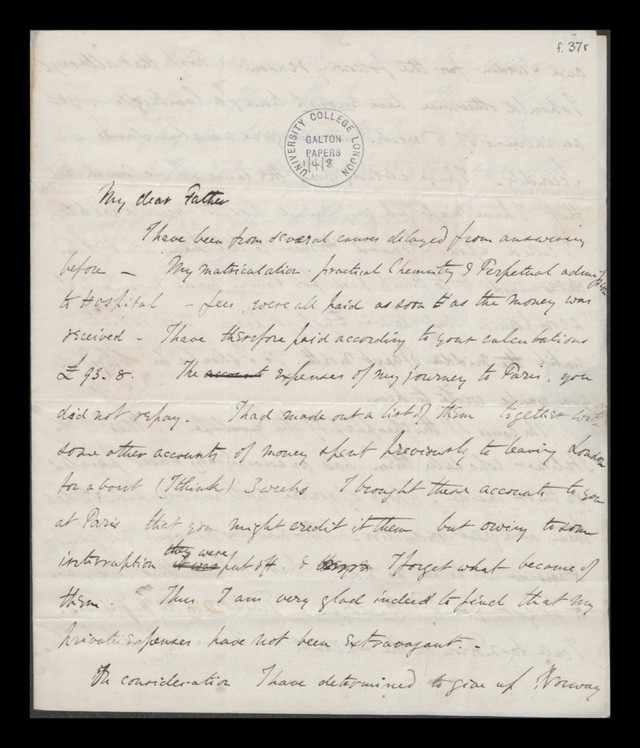 f. 37r
UNIVERSITY COLLEGE LONDON
GALTON
PAPERS
1/4/8
My dear Father
I have been from several causes delayed from answering
before — My matriculation. practical Chemistry & Perpetual admission
to Hospital – fees, were all paid as soon as the money was
received – I have therefore paid according to your calculations
£93.8. The account expenses of my journey to Paris, you
did not repay. I had made out a list of them together with
some other accounts of money spent previously to leaving London
for about (I think) 3 weeks I brought these accounts to you
at Paris that you might credit them but owing to some
interruption they were it was put off & I forget what became of
them. Thus I am very glad indeed to find that my
private expenses have not been extravagant. –
In consideration I have determined to give up Norway